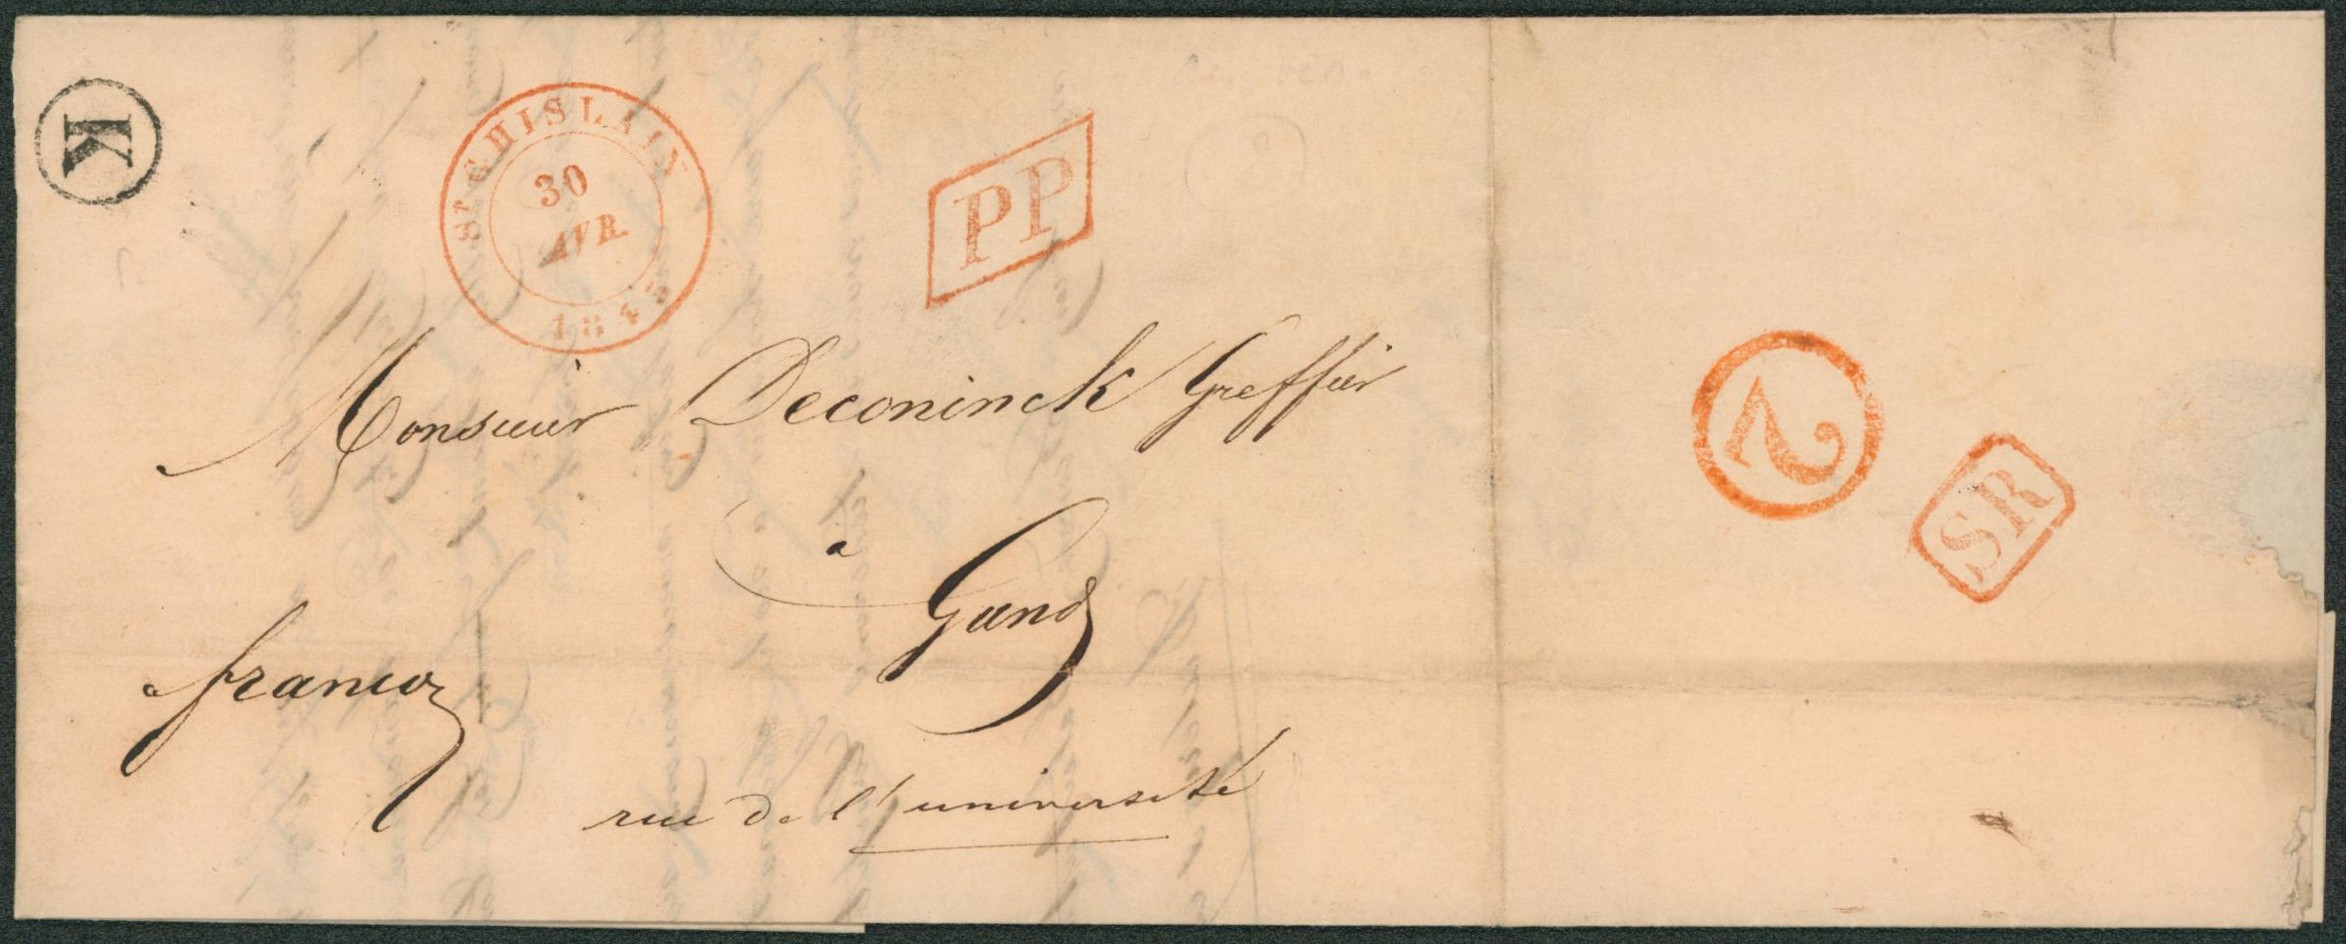 K
ST GHISLAIN
30
AVR.
1845
PP
Monsieur Deconinck Greffier
à
Gand
franco
rue de l'université
2
SR